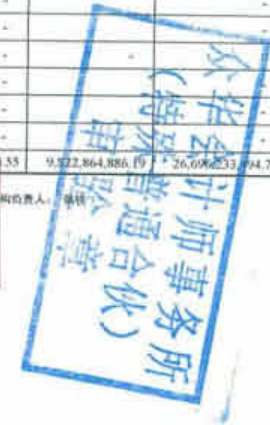 .55 9,822,864,886.19 26,696,233,494.7
构负责人：
众华会计师事务所
（特殊普通合伙）
审验章